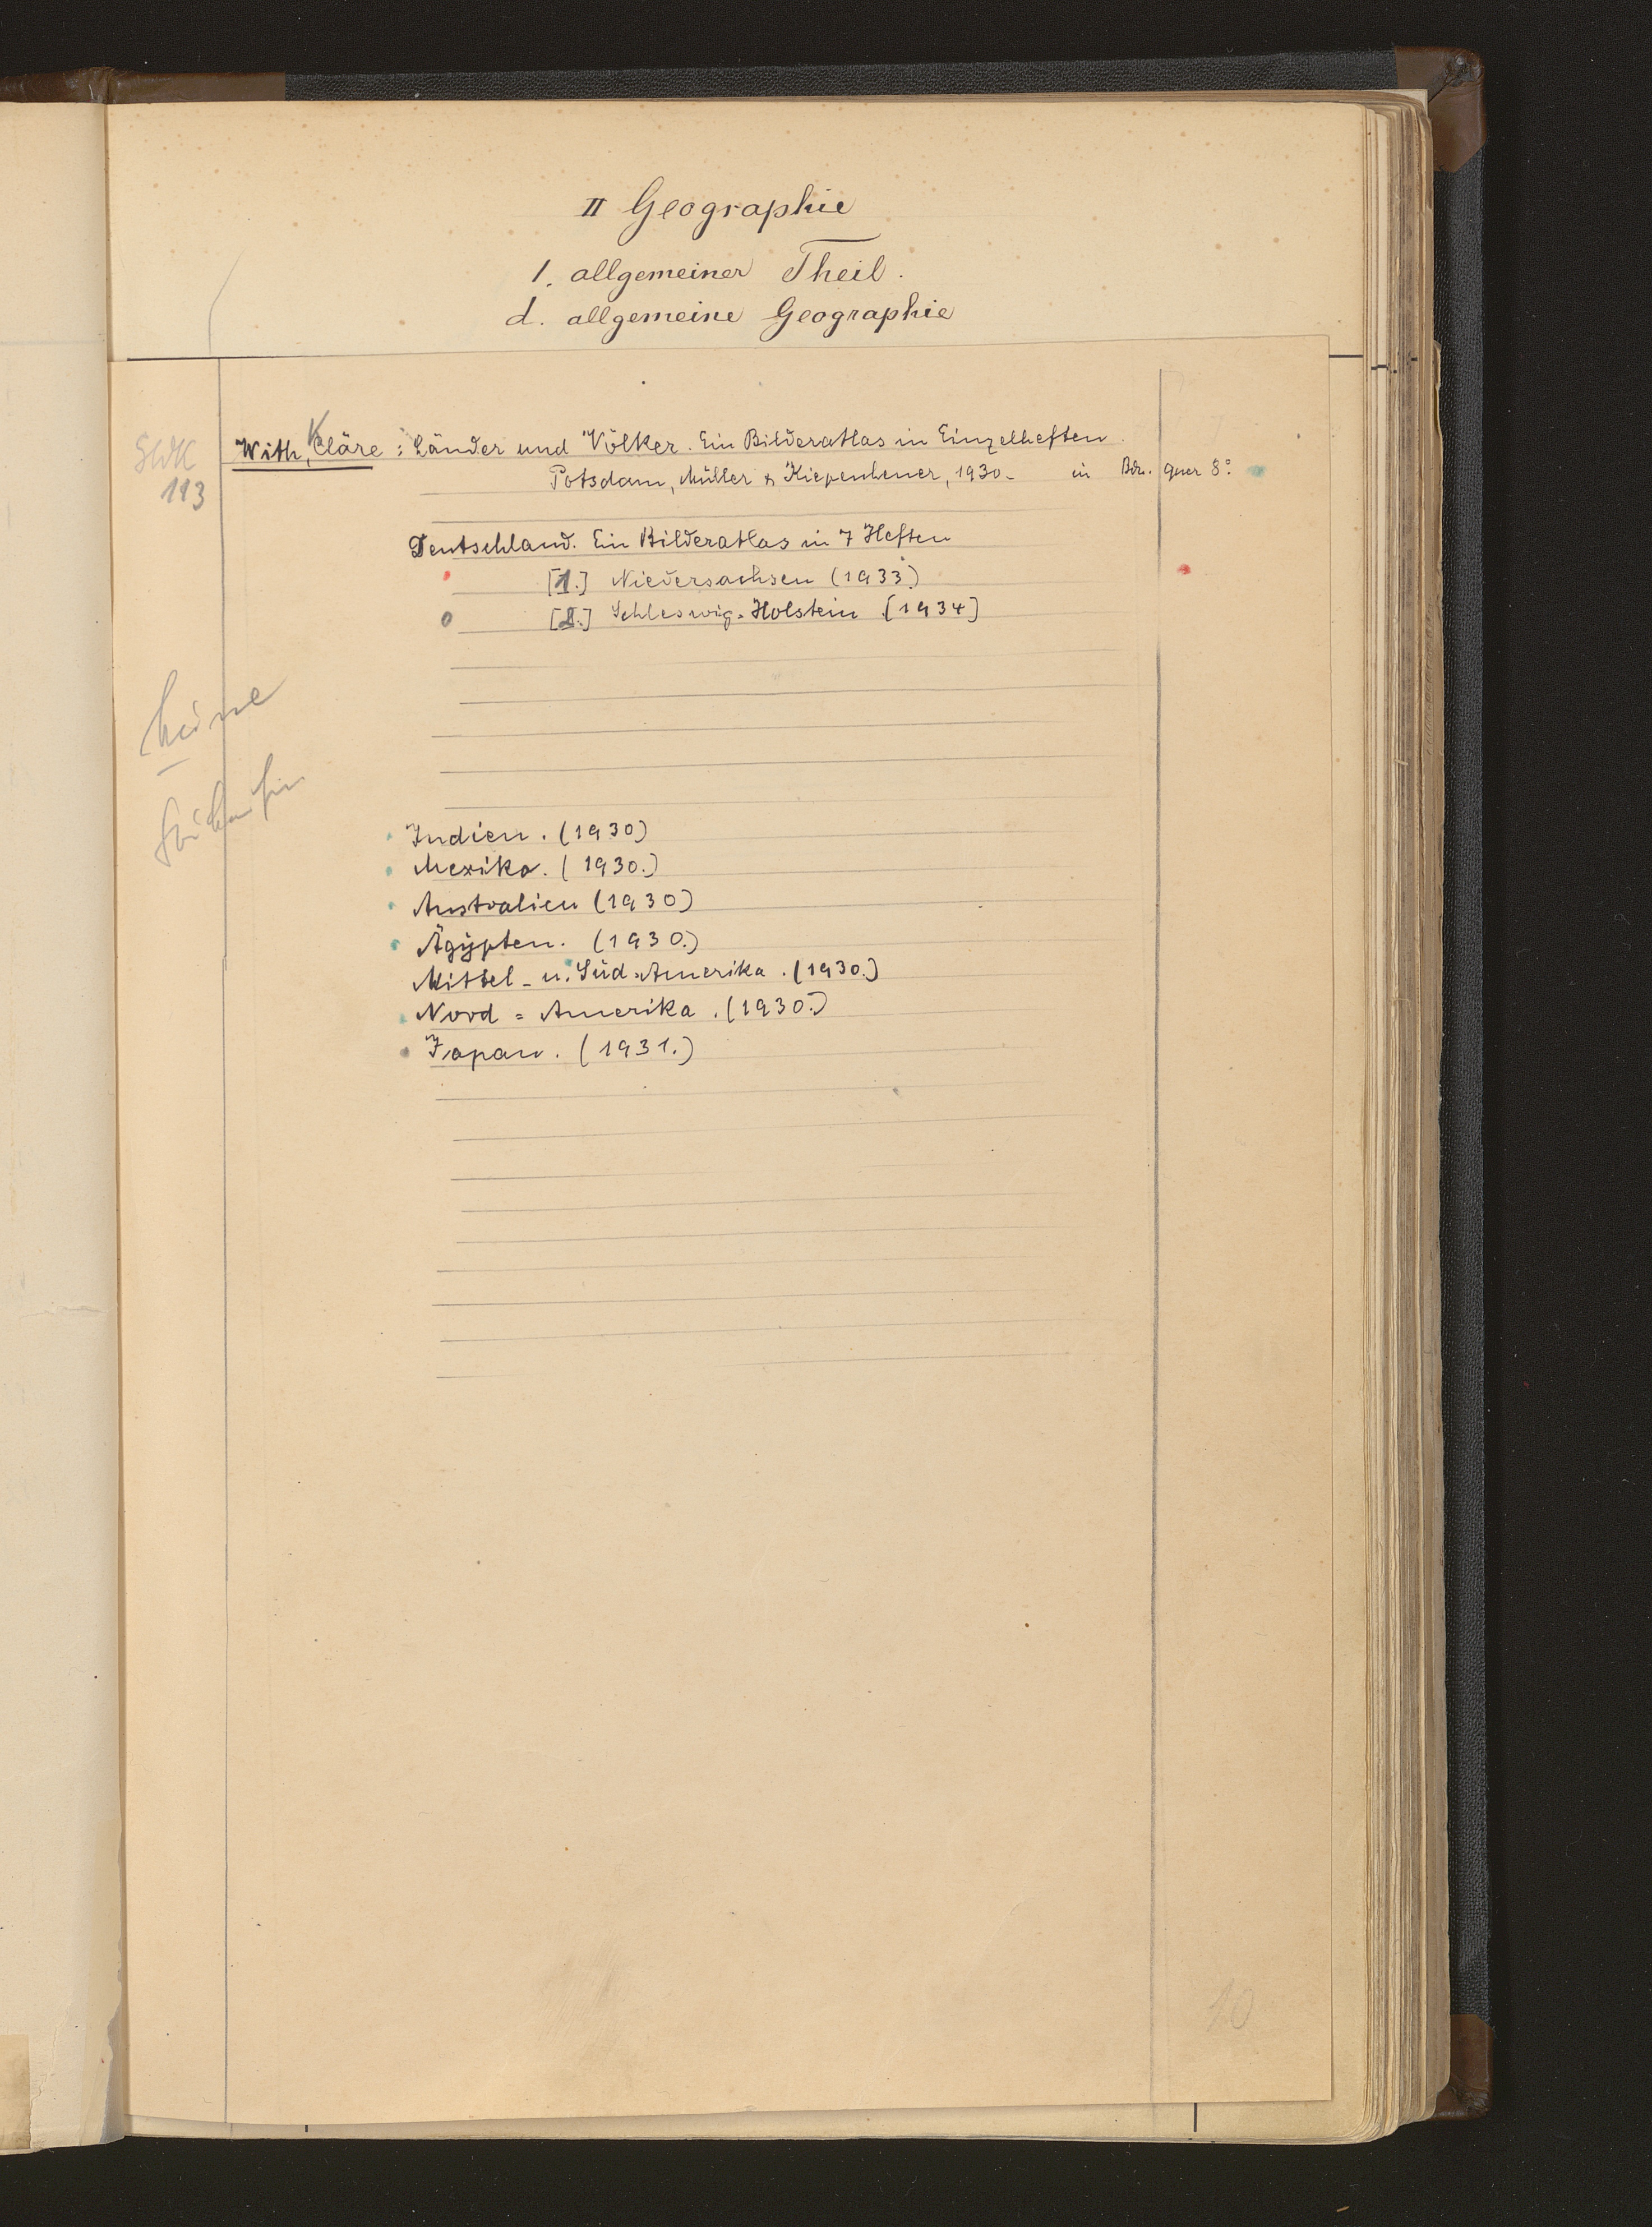 II Geographie
1. allgemeiner Theil.
d. allgemeine Geographie
113
With, Kläre: Länder und Völker. Ein Bilderatlas in Einzelheften.
Potsdam, Müller & Kiepenheuer, 1930- in Bdn. quer 8°.
Deutschland. Ein Bilderatlas in 7 Heften
[1.] Niedersachsen (1933.)
[2.] Schleswig-Holstein [1934]
keine
Indien. (1930)
Mexiko. (1930.)
Australien (1930)
Ägypten. (1930.)
Mittel- u. Süd=Amerika. (1930.)
Nord=Amerika. (1930.)
Japan. (1931.)
10